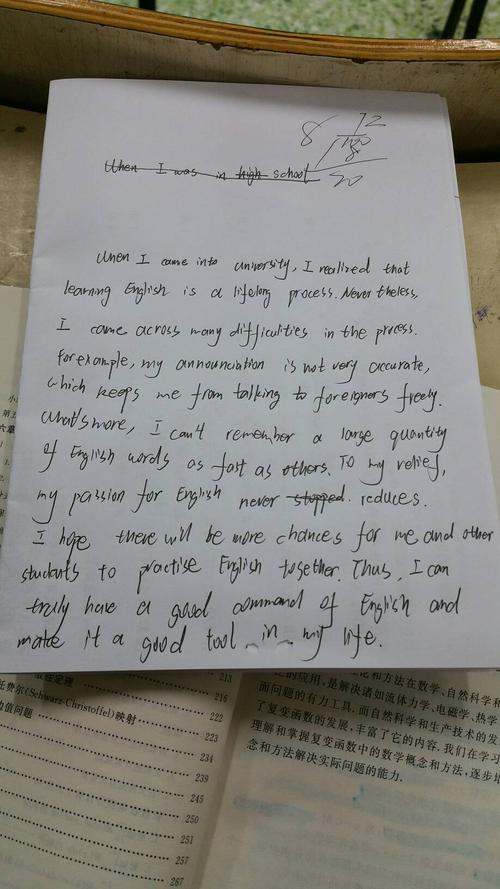 8 12
When I was in high school
When I came into university, I realized that
learning English is a lifelong process. Never theless,
I came across many difficulties in the process.
For example, my announciation is not very accurate,
which keeps me from talking to foreigners freely.
What's more, I can't remember a large quantity
of English words as fast as others. To my relief,
my passion for English never stopped reduces.
I hope there will be more chances for me and other
students to practise English together. Thus, I can
truly have a good command of English and
make it a good tool in my life.
213
托费尔(Schwarz-Christoffel)映射 216
边值问题 222
223
234
239
245
250
251
257
267
论和方法在数学、自然科学和
的应用,是解决诸如流体力学、电磁学、热学
面问题的有力工具.而自然科学和生产技术的发
了复变函数的发展,丰富了它的内容.我们在学习
理解和掌握复变函数中的数学概念和方法,逐步培
念和方法解决实际问题的能力.